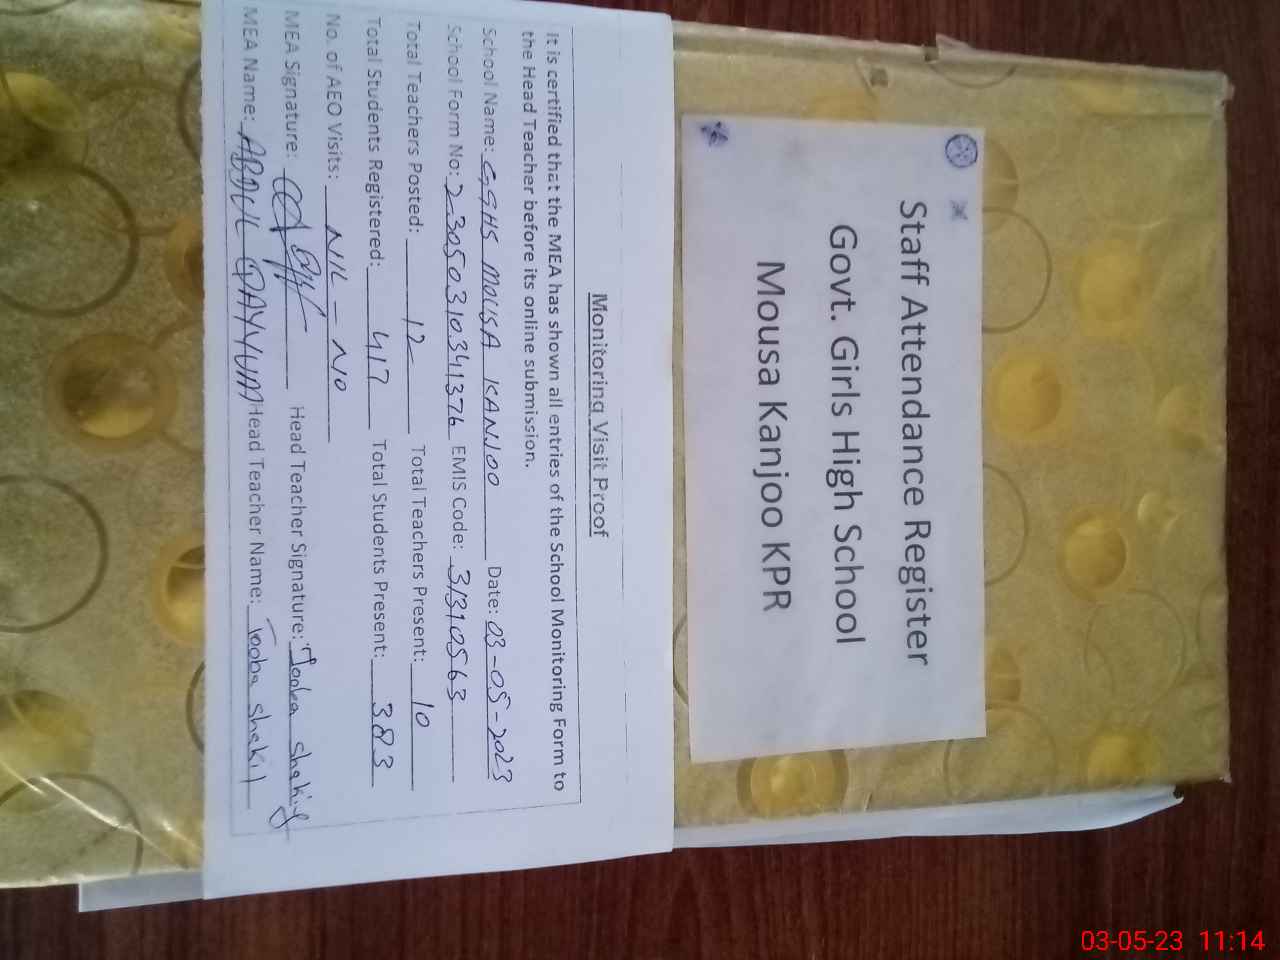 Staff Attendance Register
Govt. Girls High School
Mousa Kanjoo KPR
Monitoring Visit Proof
It is certified that the MEA has shown all entries of the School Monitoring Form to
the Head Teacher before its online submission.
School Name: GGHS MOUSA KANJOO Date: 03-05-2023
School Form No: 23050310341376 EMIS Code: 31310563
Total Teachers Posted: 12 Total Teachers Present: 10
Total Students Registered: 417 Total Students Present: 383
No. of AEO Visits: NIL - No
MEA Signature: Head Teacher Signature: Tooba
MEA Name: ABDUL QAYYUM Head Teacher Name: Tooba Shakil
03-05-23 11:14